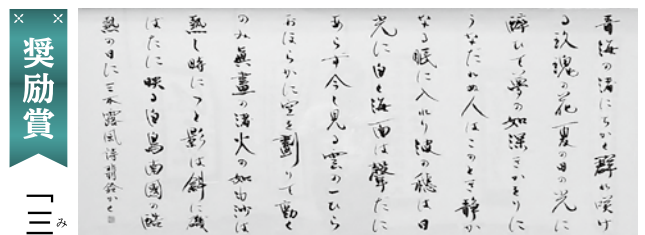 奨励賞
「三
み
青海の渚にちかく群れ咲け
る玫瑰の花夏の日の光に
酔ひて夢の如深きかをりに
うなだれぬ人はこのとき静か
なる眠に入れり波の穂は日
光に白く海面は聲だに
あらず今し見る雲の一ひら
おほらかに空を劃りて動く
のみ真晝の渚火の如き沙は
熱し時につと影は斜に磯
はたに映る白鳥南國の
熱の日に 三木露風詩 かく